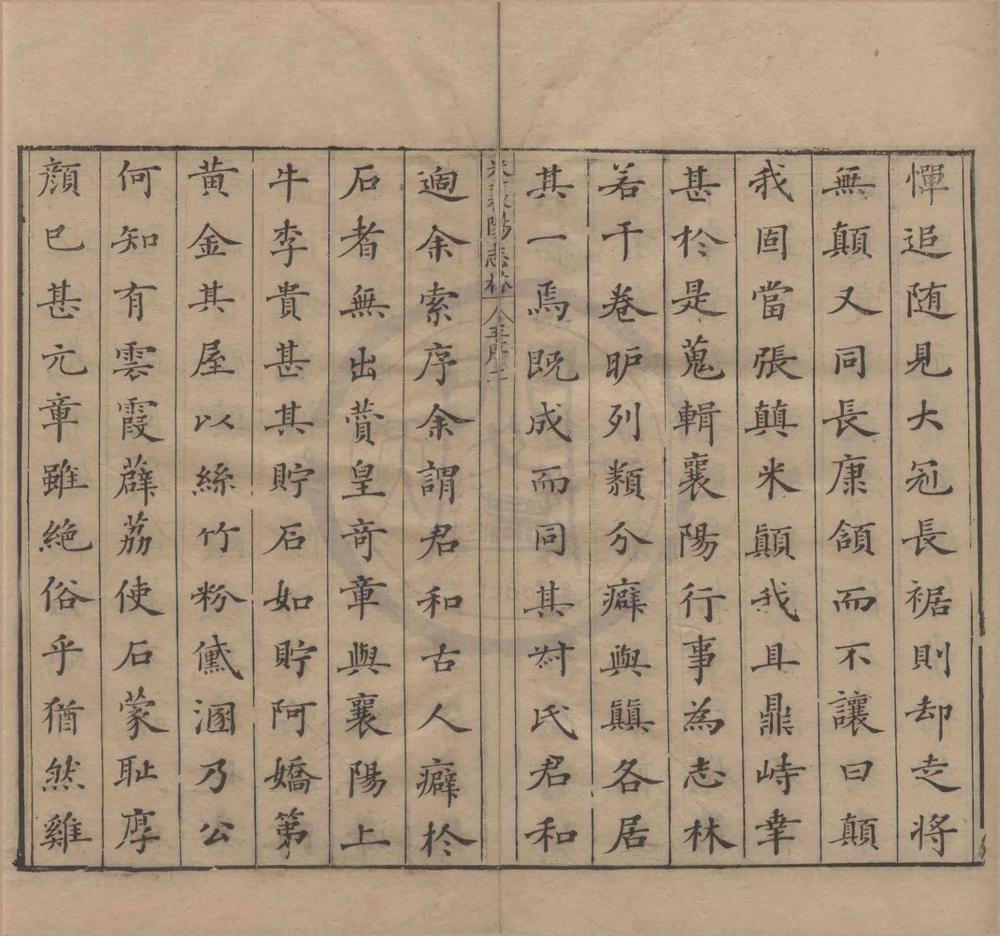 憚追随見大冠長裾則却走將
無顛又同長康頷而不讓曰顛
我固當張顛米顛我且鼎峙幸
甚於是蒐輯襄陽行事為志林
若干卷昈列類分癖與顛各居
其一焉既成而同其尌氏君和
米襄陽志林 王序二
逈余索序余謂君和古人癖於
石者無出賛皇竒章與襄陽上
牛李貴甚其貯石如貯阿嬌第
黃金其屋以絲竹粉黛溷乃公
何知有雲霞薜荔使石蒙耻厚
顔巳甚元章雖絶俗乎猶然雞